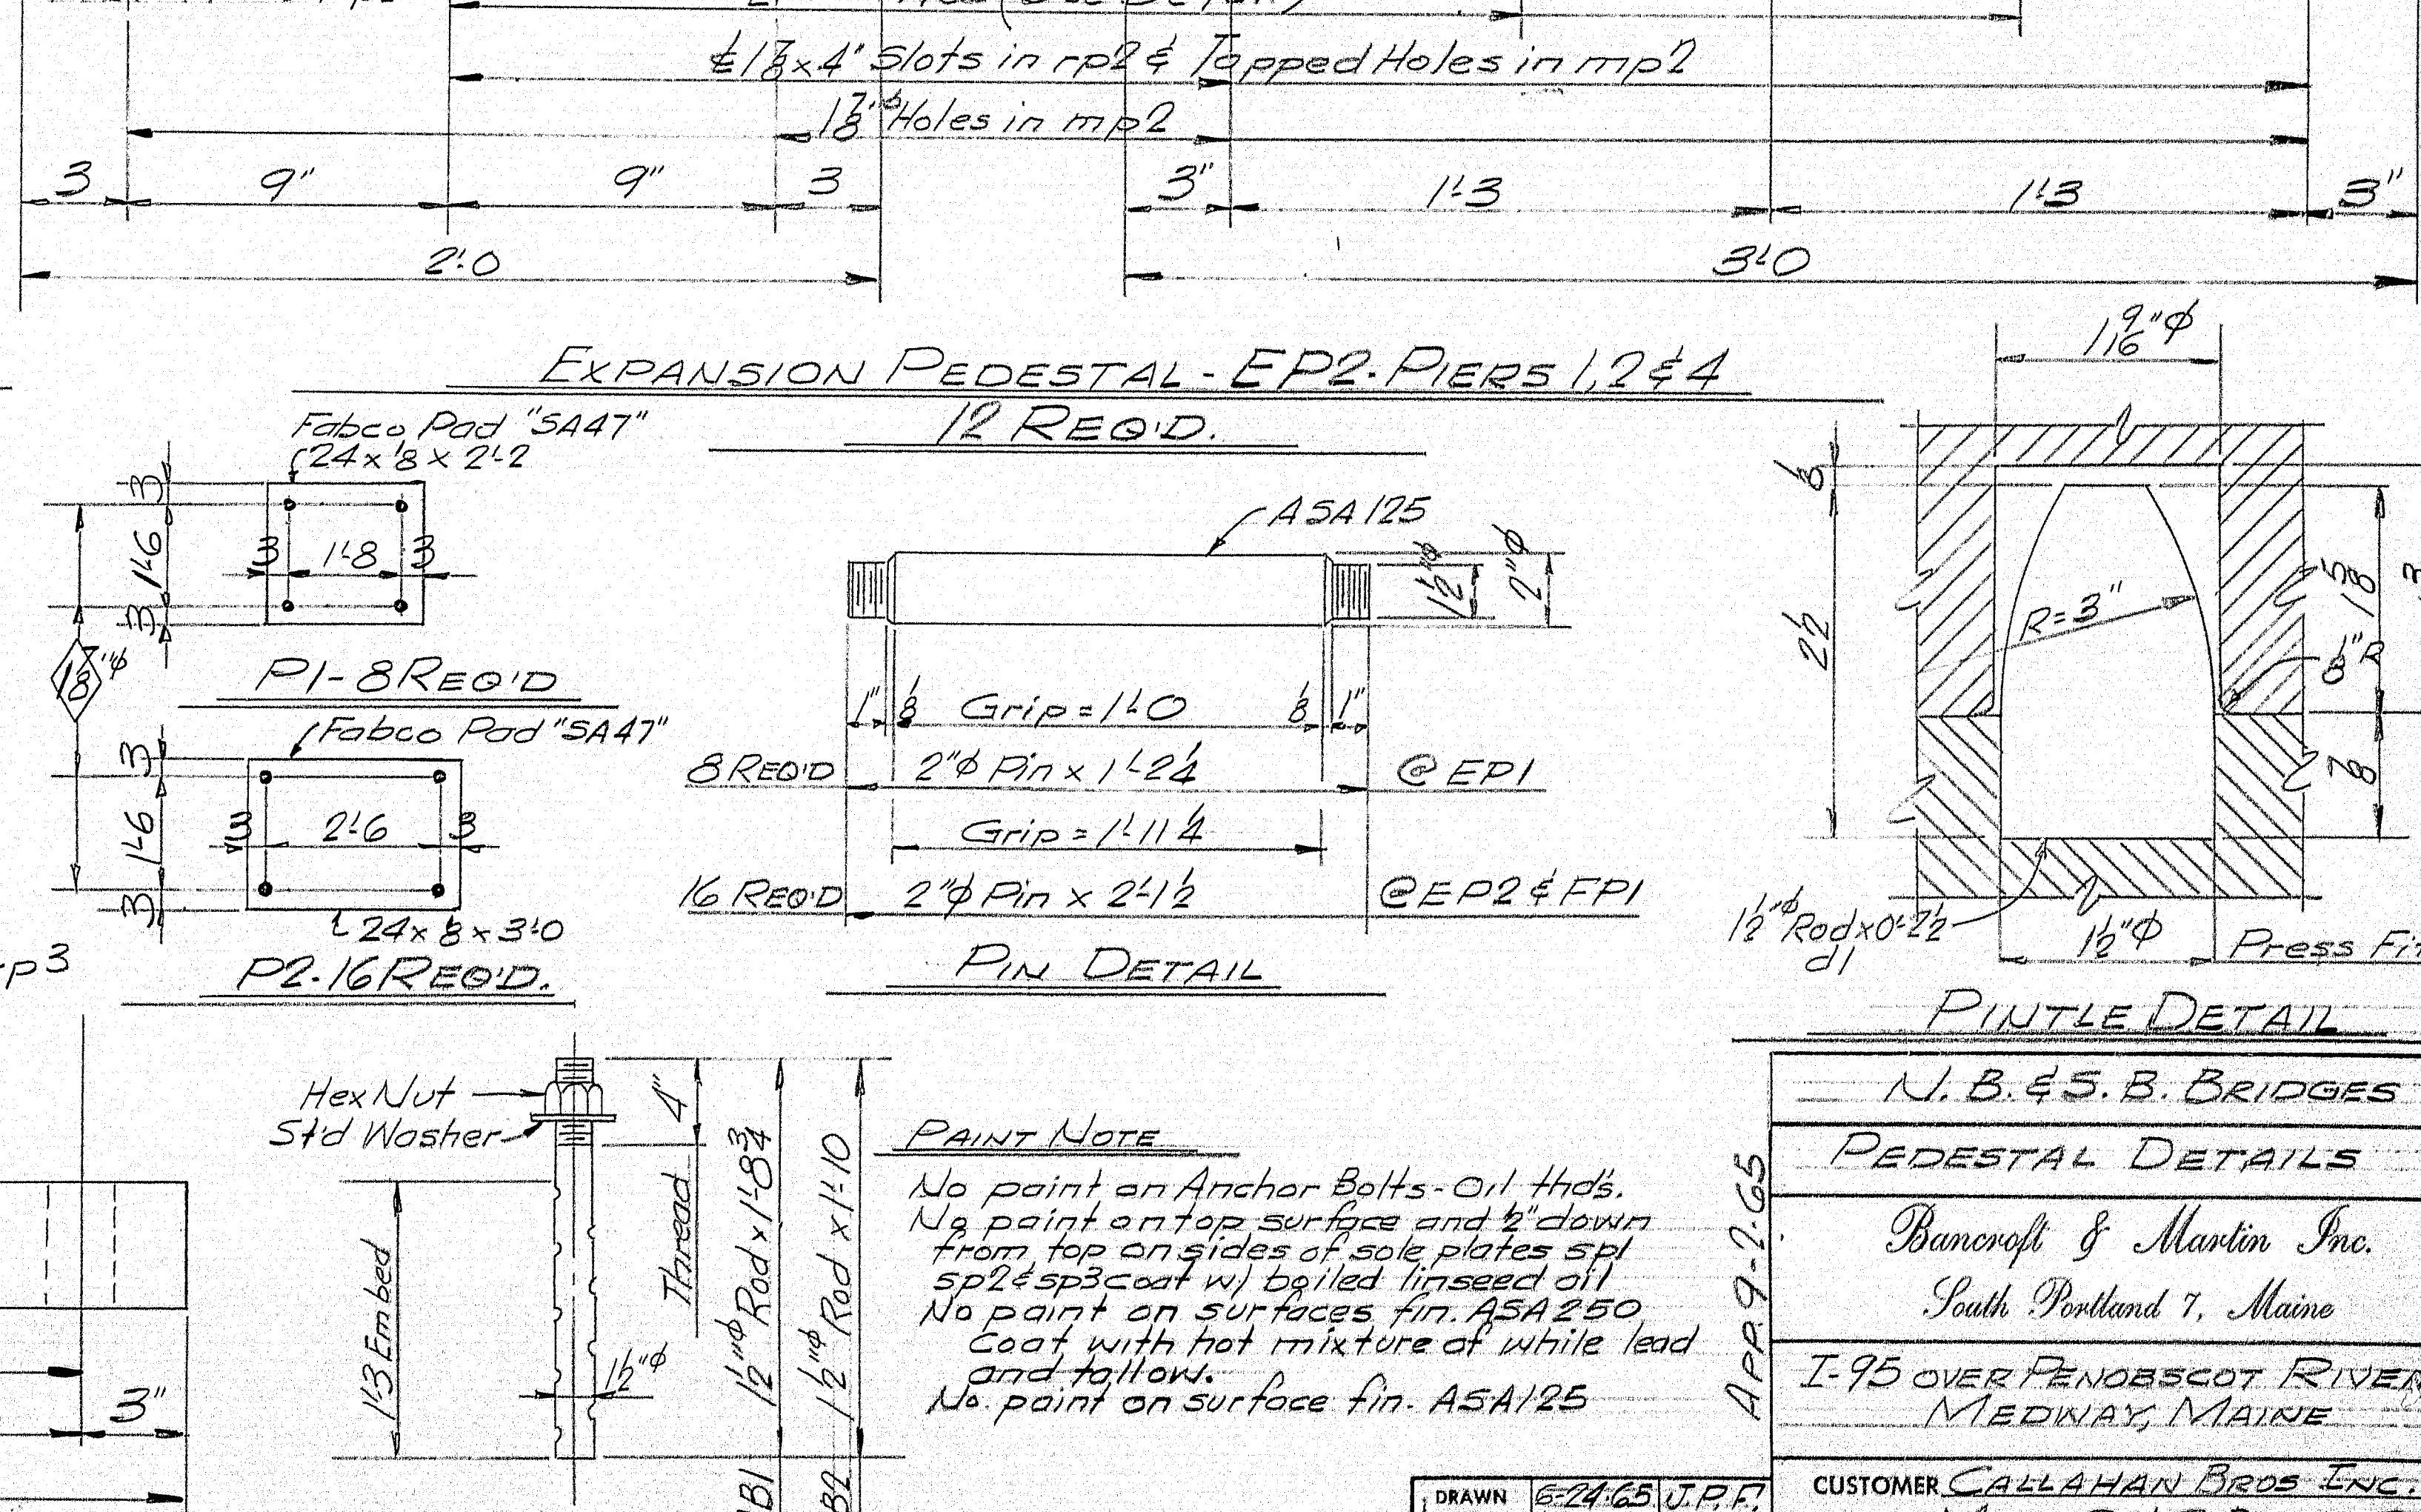 ℄ 1 7/8 x 4" Slots in rp2 & Tapped Holes in mp2
1 7/8"φ Holes in mp2
3 9" 9" 3 3" 1'-3 1'-3 3"
2'-0 3'-0
EXPANSION PEDESTAL - EP2 - PIERS 1, 2 & 4
12 REQ'D.
1 9/16"φ
Fabco Pad "SA47"
24 x 1/8 x 2'-2
3
1'-6
3
3 1'-8 3
1 7/8"φ
P1 - 8 REQ'D
Fabco Pad "SA47"
3
1'-6
3
3 2'-6 3
24 x 1/8 x 3'-0
P2 - 16 REQ'D.
rp3
ASA 125
1 1/2"φ
2"φ
1" 1/8 Grip = 1'-0 1/8 1"
8 REQ'D 2"φ Pin x 1'-2 1/4 @ EP1
Grip = 1'-11 1/4
16 REQ'D 2"φ Pin x 2'-1 1/2 @ EP2 & FP1
PIN DETAIL
1/8
2 1/2
R = 3"
1 5/8
1/8" R
7/8
1 1/2"φ Rod x 0'-2 1/2
d1
1 1/2"φ Press Fit
PINTLE DETAIL
Hex Nut
St'd Washer
4"
Thread
1'-3 Embed
1 1/2"φ
1 1/2"φ Rod x 1'-8 3/4
1 1/2"φ Rod x 1'-10
B1
B2
3"
PAINT NOTE
No paint on Anchor Bolts - Oil thds.
No paint on top surface and 1/2" down
from top on sides of sole plates sp1
sp2 & sp3 coat w/ boiled linseed oil
No paint on surfaces fin. ASA 250
Coat with hot mixture of while lead
and tallow.
No paint on surface fin. ASA 125
APP. 9-2-65
N. B. & S. B. BRIDGES
PEDESTAL DETAILS
Bancroft & Martin Inc.
South Portland 7, Maine
I-95 OVER PENOBSCOT RIVER
MEDWAY, MAINE
CUSTOMER CALLAHAN BROS INC.
DRAWN 6-24-65 J.P.F.